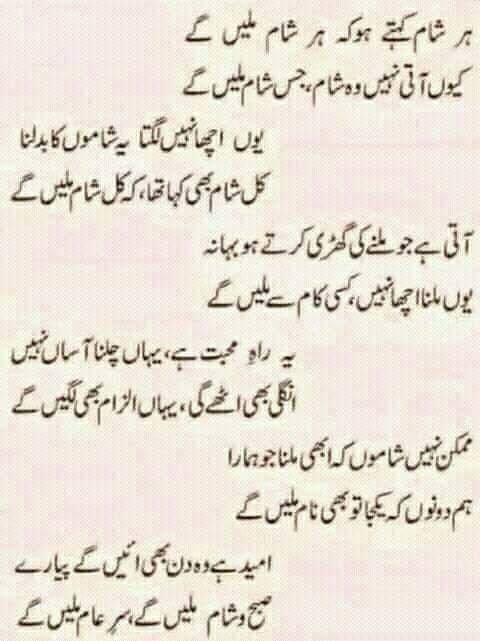 ہر شام کہتے ہو کہ ہر شام ملیں گے
کیوں آتی نہیں وہ شام، جس شام ملیں گے
یوں اچھا نہیں لگتا یہ شاموں کا بدلنا
کل شام بھی کہا تھا، کہ کل شام ملیں گے
آتی ہے جو ملنے کی گھڑی کرتے ہو بہانہ
یوں ملنا اچھا نہیں، کسی کام سے ملیں گے
یہ راہِ محبت ہے، یہاں چلنا آساں نہیں
انگلی بھی اٹھے گی، یہاں الزام بھی لگیں گے
ممکن نہیں شاموں کہ ابھی ملنا جو ہمارا
ہم دونوں کہ یکجا تو بھی نام ملیں گے
امید ہے وہ دن بھی ائیں گے پیارے
صبح و شام ملیں گے، سرِ عام ملیں گے